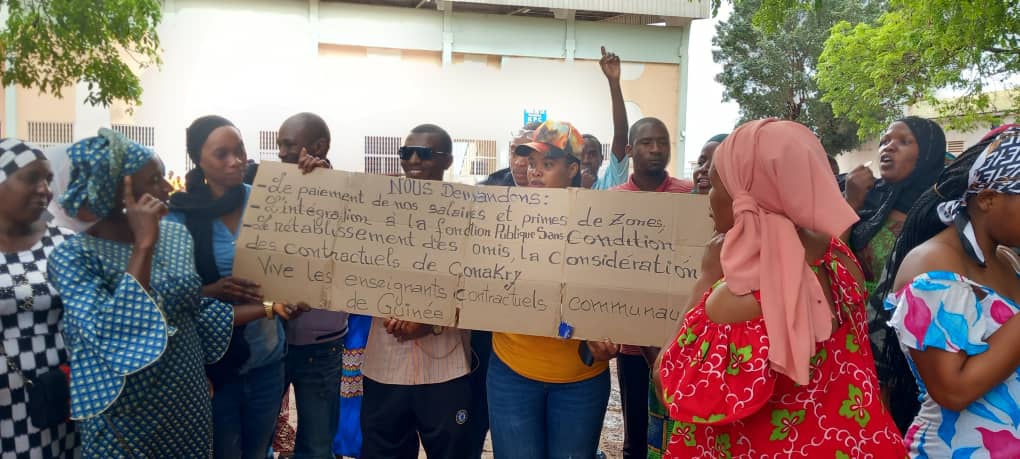 NOUS Demandons:
- Le paiement de nos salaires et primes de Zones,
- L'intégration à la fonction Publique Sans Condition
- Le rétablissement des omis, la Considération
des contractuels de Conakry
Vive les enseignants contractuels communau
de Guinée